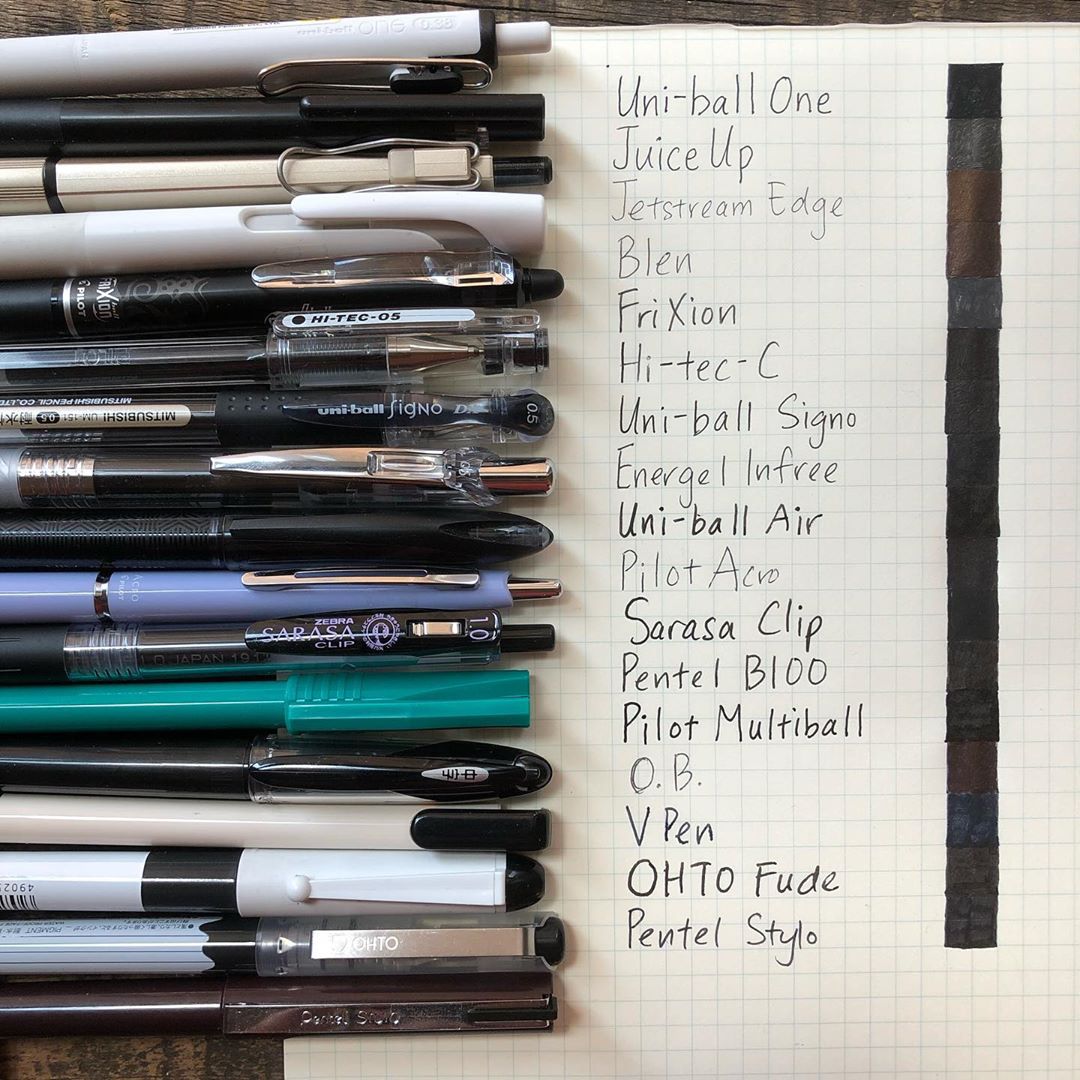 uni-ball one 0.38
Uni-ball One
Juice Up
Jetstream Edge
Blen
FriXion
PILOT
FriXion
HI-TEC-05
Hi-tec-C
uni-ball Signo DX 0.5
MITSUBISHI UM-151 0.5 耐水
MITSUBISHI PENCIL CO., LTD
Uni-ball Signo
Energel Infree
Uni-ball Air
ACRO
PILOT
Pilot Acro
ZEBRA
SARASA
CLIP
1.0
JAPAN
Sarasa Clip
Pentel B100
Pilot Multiball
中字
O.B.
V Pen
4902
OHTO Fude
OHTO
PIGMENT
Pentel Stylo
Pentel Stylo